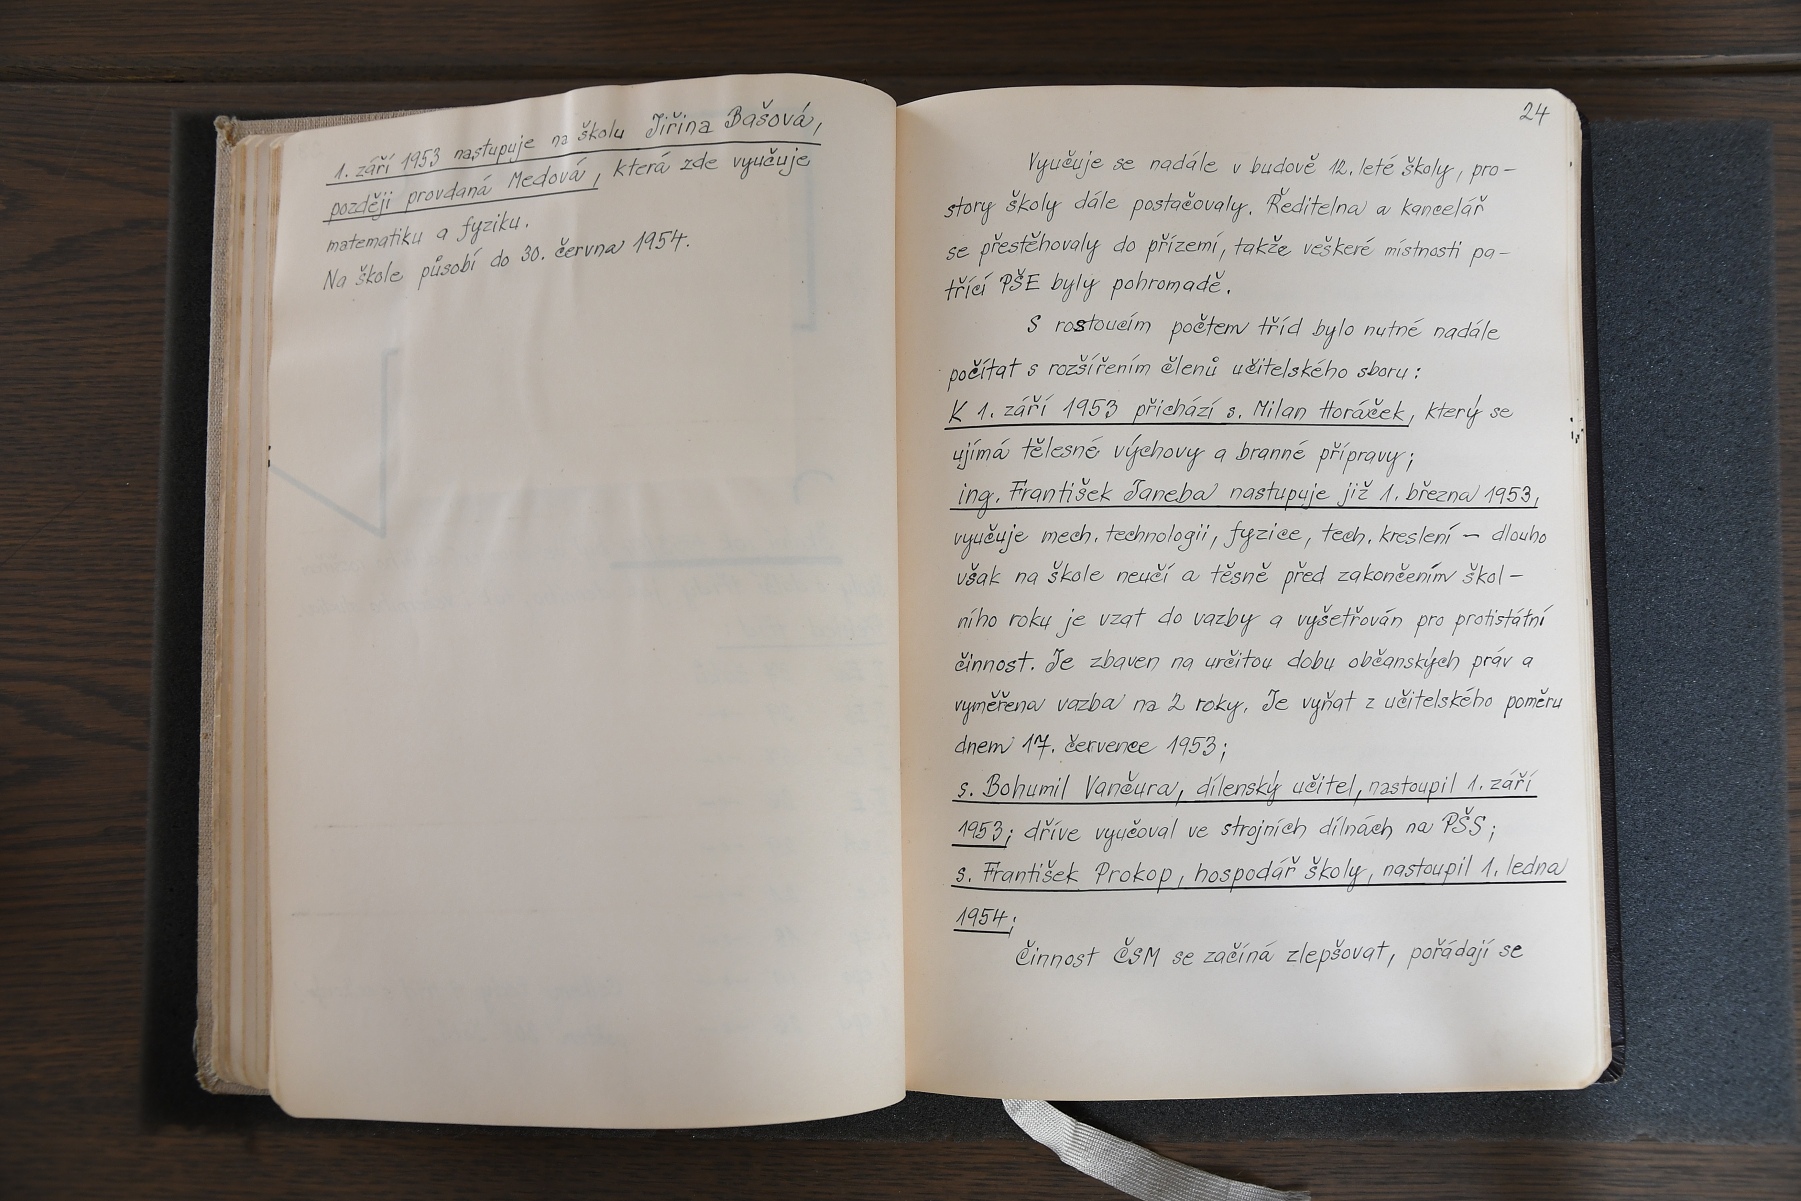 1. září 1953 nastupuje na školu Jiřina Bašová,
později provdaná Medová, která zde vyučuje
matematiku a fyziku.
Na škole působí do 30. června 1954.
24
Vyučuje se nadále v budově 12. leté školy, pro-
story školy dále postačovaly. Ředitelna a kancelář
se přestěhovaly do přízemí, takže veškeré místnosti pa-
třící PŠE byly pohromadě.
S rostoucím počtem tříd bylo nutné nadále
počítat s rozšířením členů učitelského sboru:
K 1. září 1953 přichází s. Milan Horáček, který se
ujímá tělesné výchovy a branné přípravy;
ing. František Janeba nastupuje již 1. března 1953,
vyučuje mech. technologii, fyzice, tech. kreslení – dlouho
však na škole neučí a těsně před zakončením škol-
ního roku je vzat do vazby a vyšetřován pro protistátní
činnost. Je zbaven na určitou dobu občanských práv a
vyměřena vazba na 2 roky. Je vyňat z učitelského poměru
dnem 17. července 1953;
s. Bohumil Vančura, dílenský učitel, nastoupil 1. září
1953; dříve vyučoval ve strojních dílnách na PŠS;
s. František Prokop, hospodář školy, nastoupil 1. ledna
1954;
Činnost ČSM se začíná zlepšovat, pořádají se